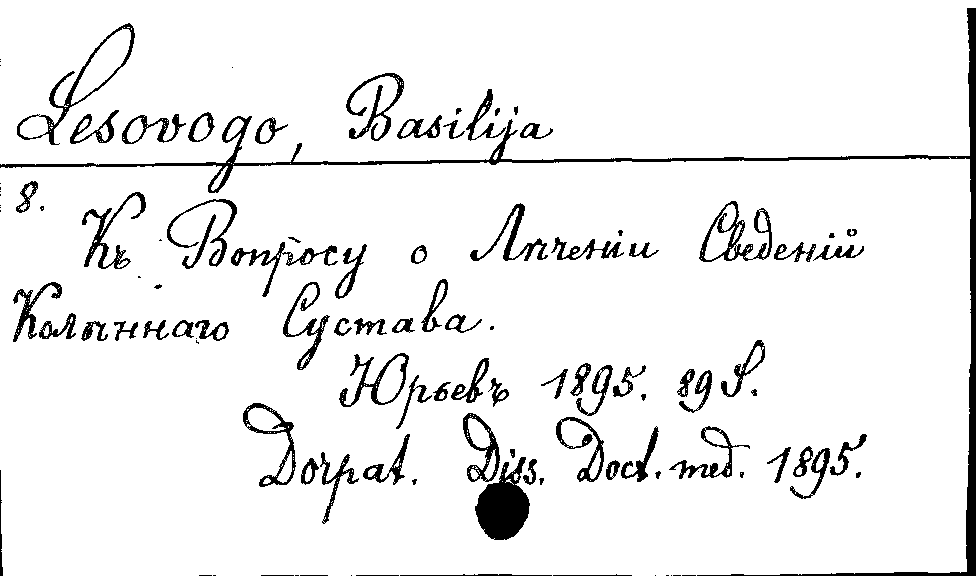 Lesovogo, Basilija
8.
Къ Вопросу о Лѣченiи Сведенiй
Колѣннаго Сустава.
Юрьевъ 1895. 89 S.
Dorpat. Diss. Doct. med. 1895.